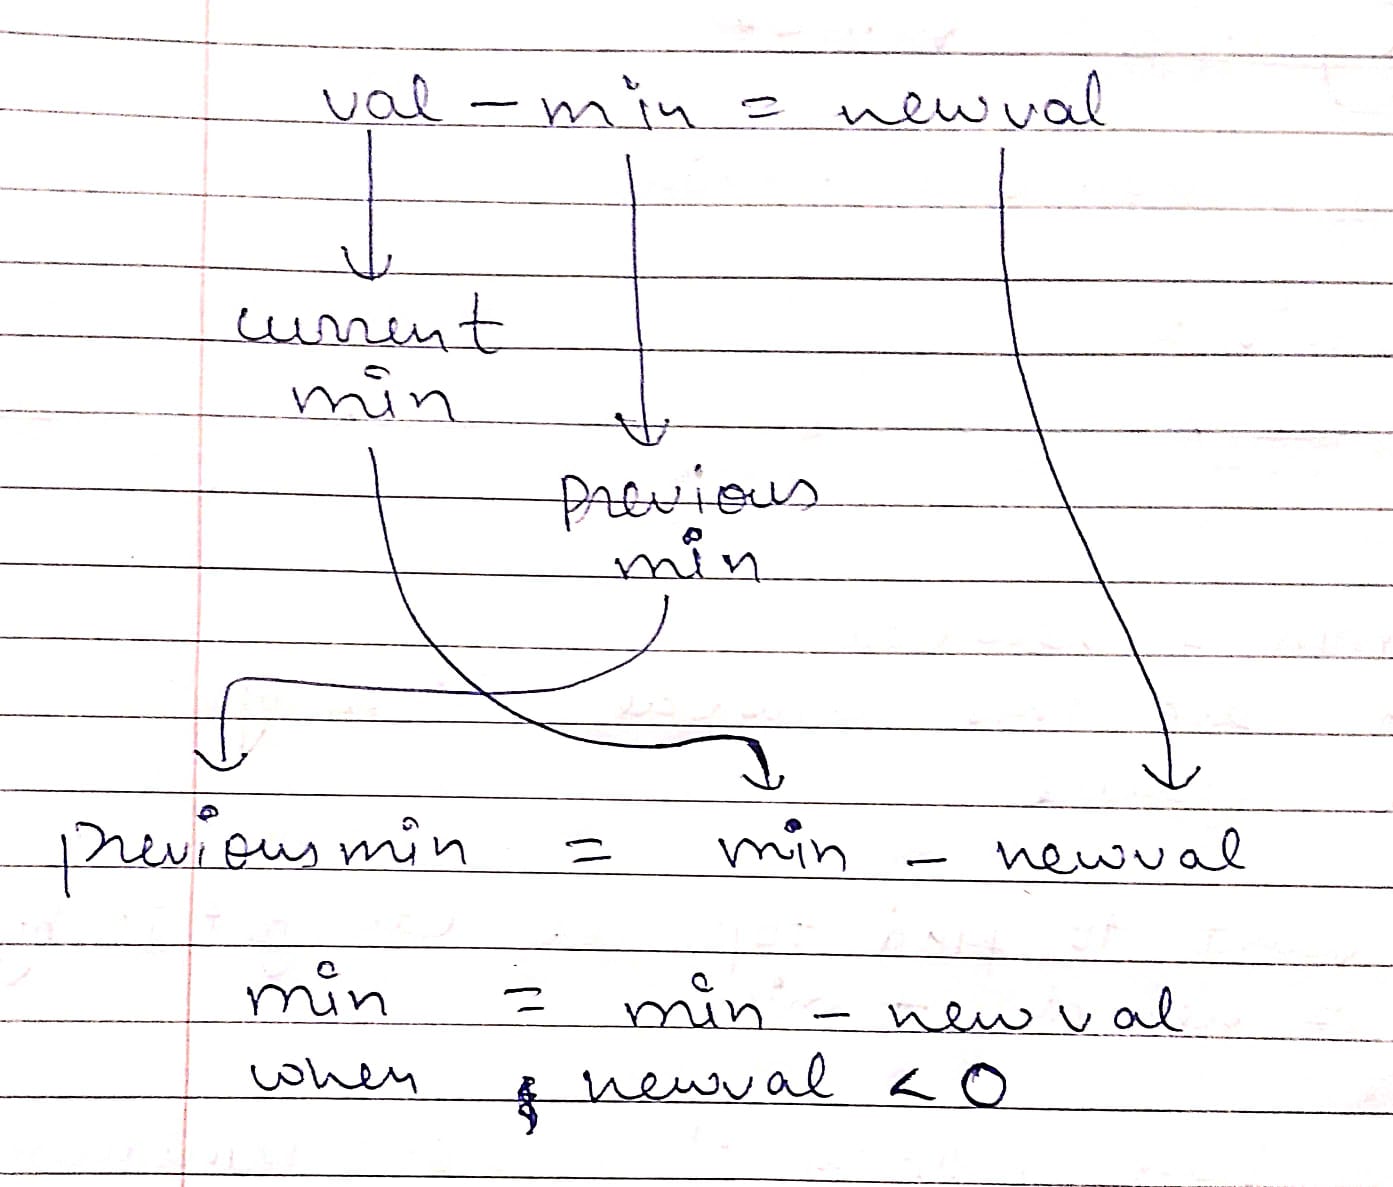 val - min = newval
current
min
previous
min
previousmin = min - newval
min = min - newval
when newval < 0